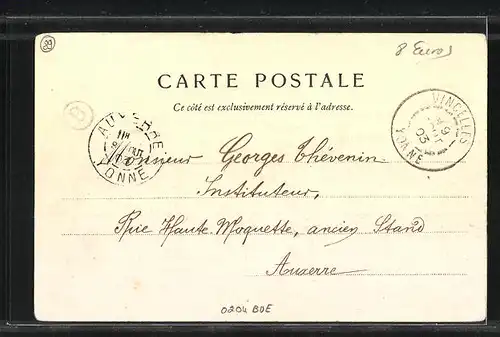 89
8 Euros
CARTE POSTALE
Ce côté est exclusivement réservé à l'adresse.
B
AUXERRE
YONNE
VINCELLES
YONNE
03
Monsieur Georges Thévenin
Instituteur,
Rue Haute Moquette, ancien Stand
Auxerre
0204 BOE